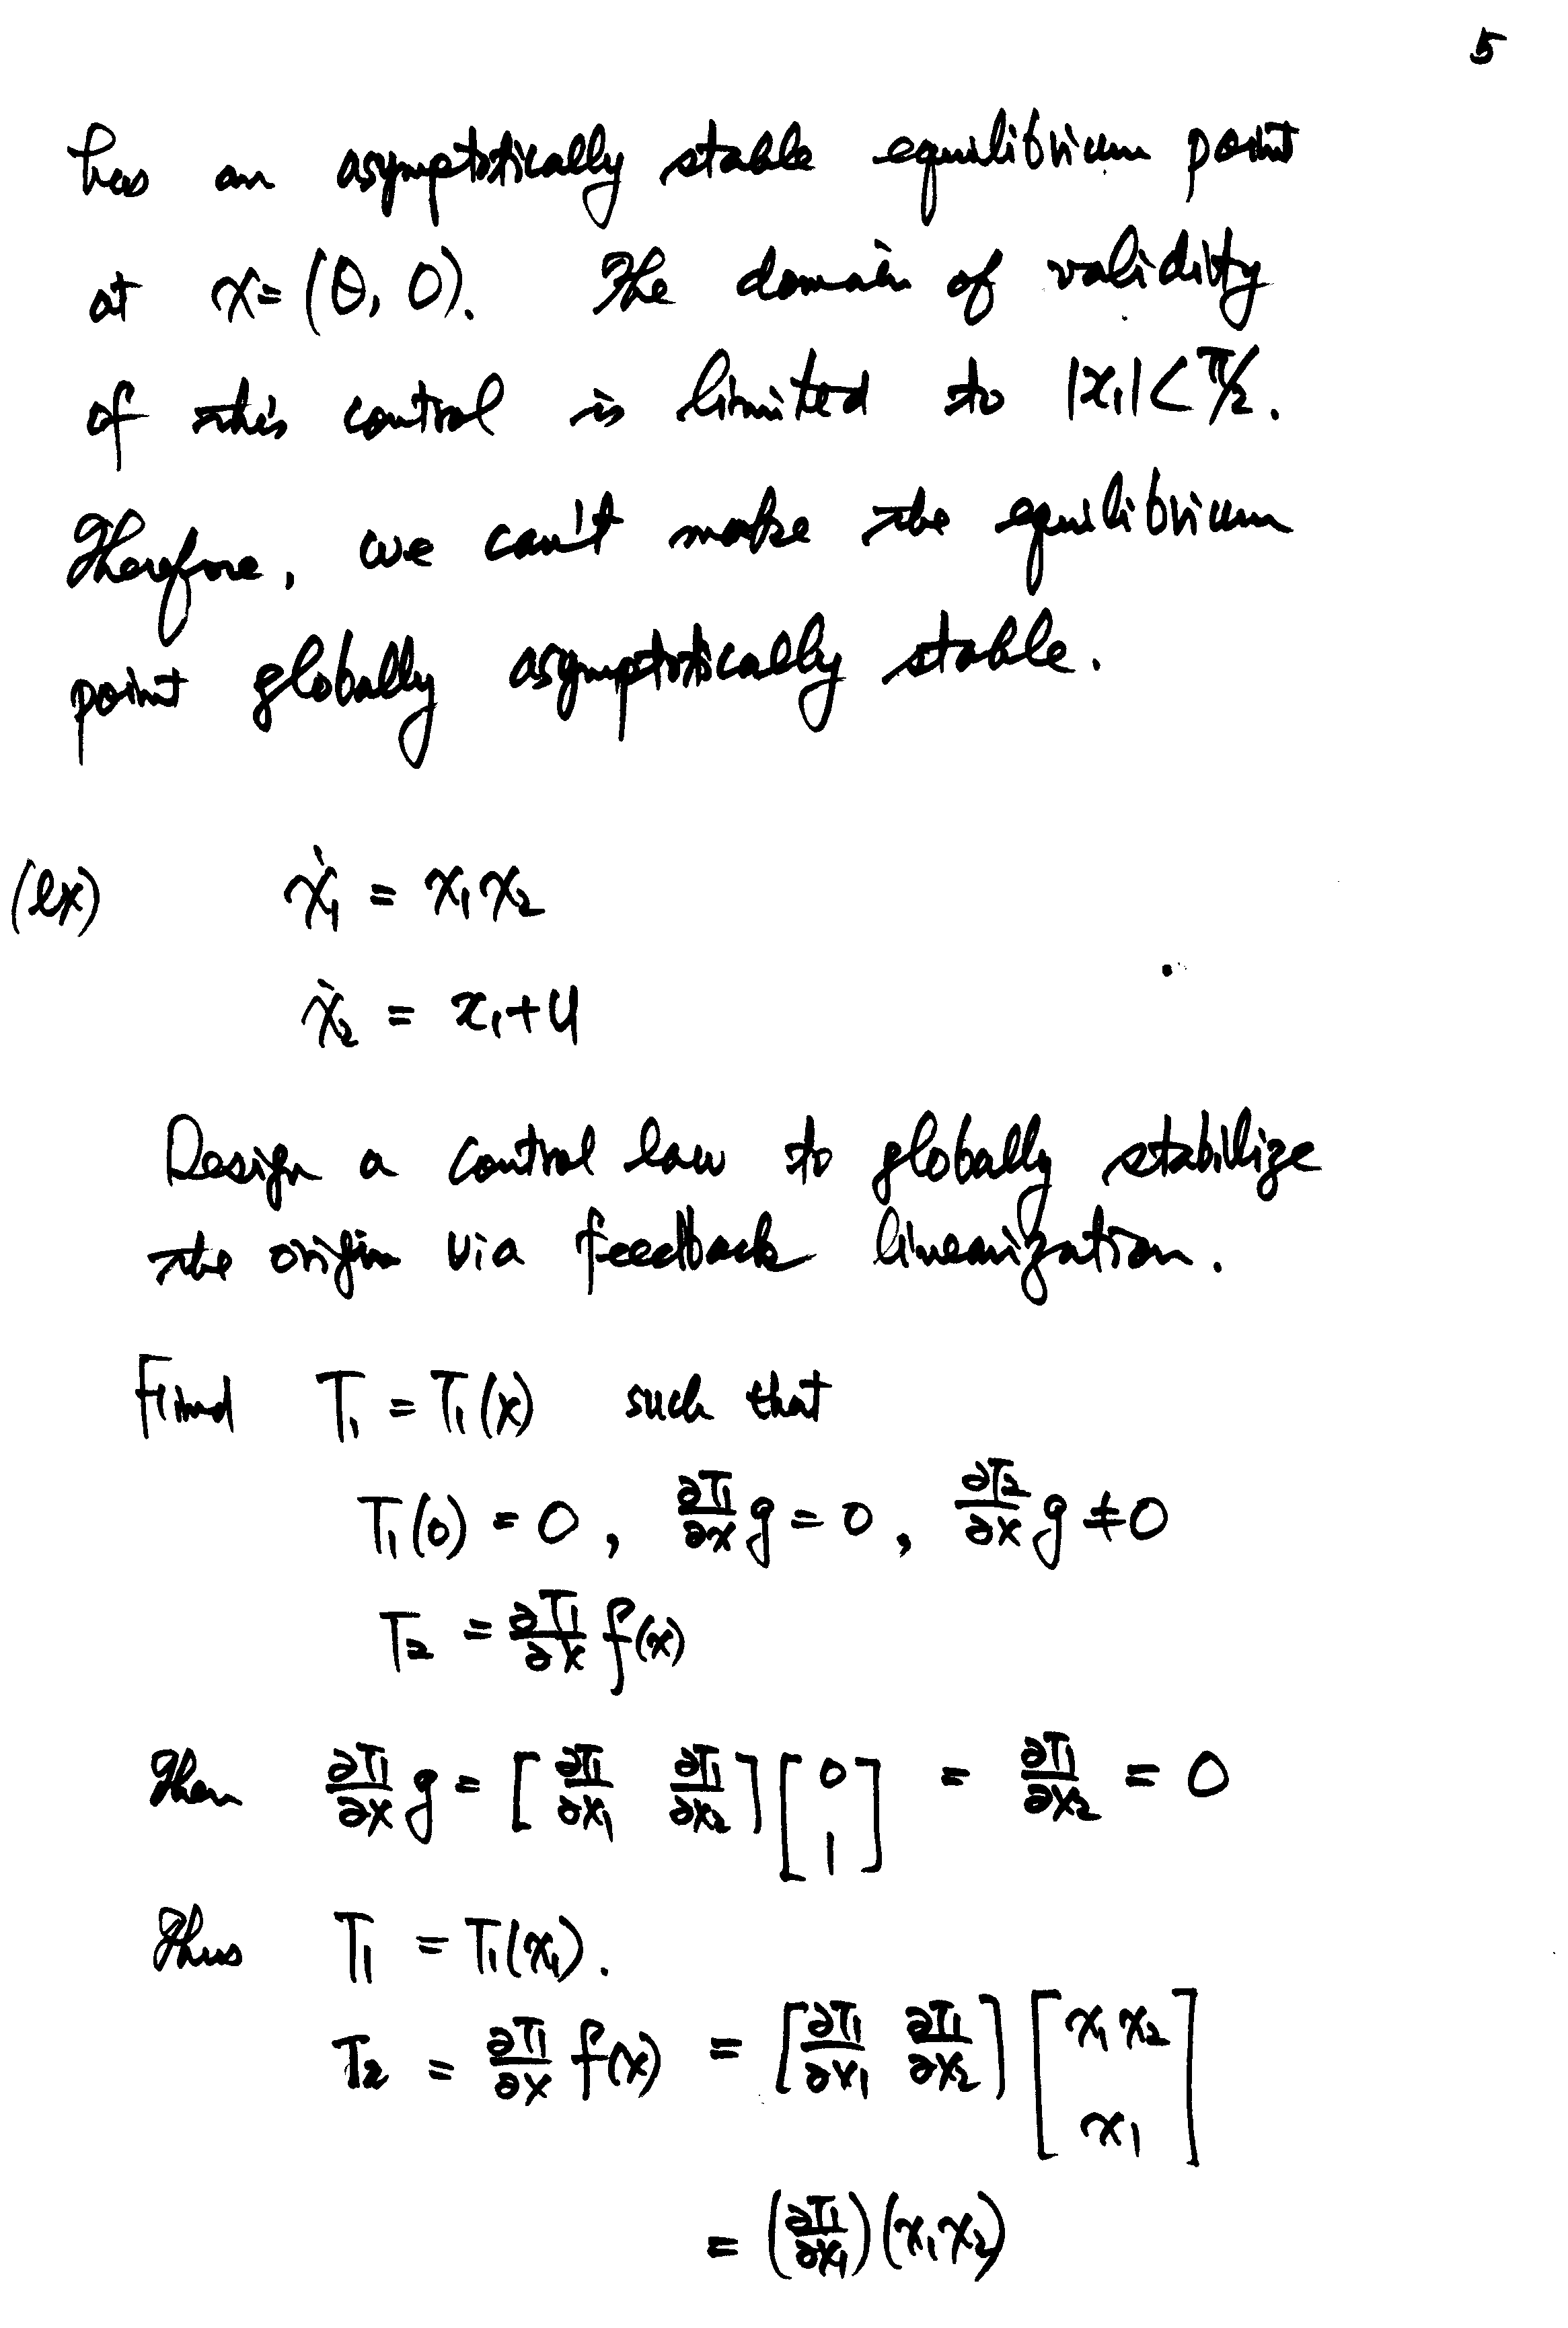 5
has an asymptotically stable equilibrium point
at x = (θ, 0). The domain of validity
of this control is limited to |x₁| < π/2.
Therefore, we can't make the equilibrium
point globally asymptotically stable.
(ex) ẋ₁ = x₁x₂
ẋ₂ = x₁+u
Design a control law to globally stabilize
the origin via feedback linearization.
Find T₁ = T₁(x) such that
T₁(0) = 0, ∂T₁/∂x g = 0, ∂T₂/∂x g ≠ 0
T₂ = ∂T₁/∂x f(x)
Then ∂T₁/∂x g = [∂T₁/∂x₁ ∂T₁/∂x₂] [0 1] = ∂T₁/∂x₂ = 0
Thus T₁ = T₁(x₁).
T₂ = ∂T₁/∂x f(x) = [∂T₁/∂x₁ ∂T₁/∂x₂] [x₁x₂ x₁]
= (∂T₁/∂x₁)(x₁x₂)